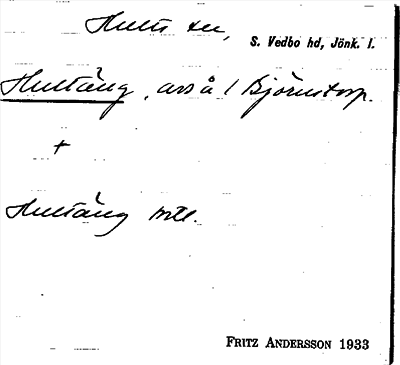 Hults sn, S. Vedbo hd, Jönk. l.
Hultäng, avs å / Björnstorp.
+
Hultäng mtl.
FRITZ ANDERSSON 1933